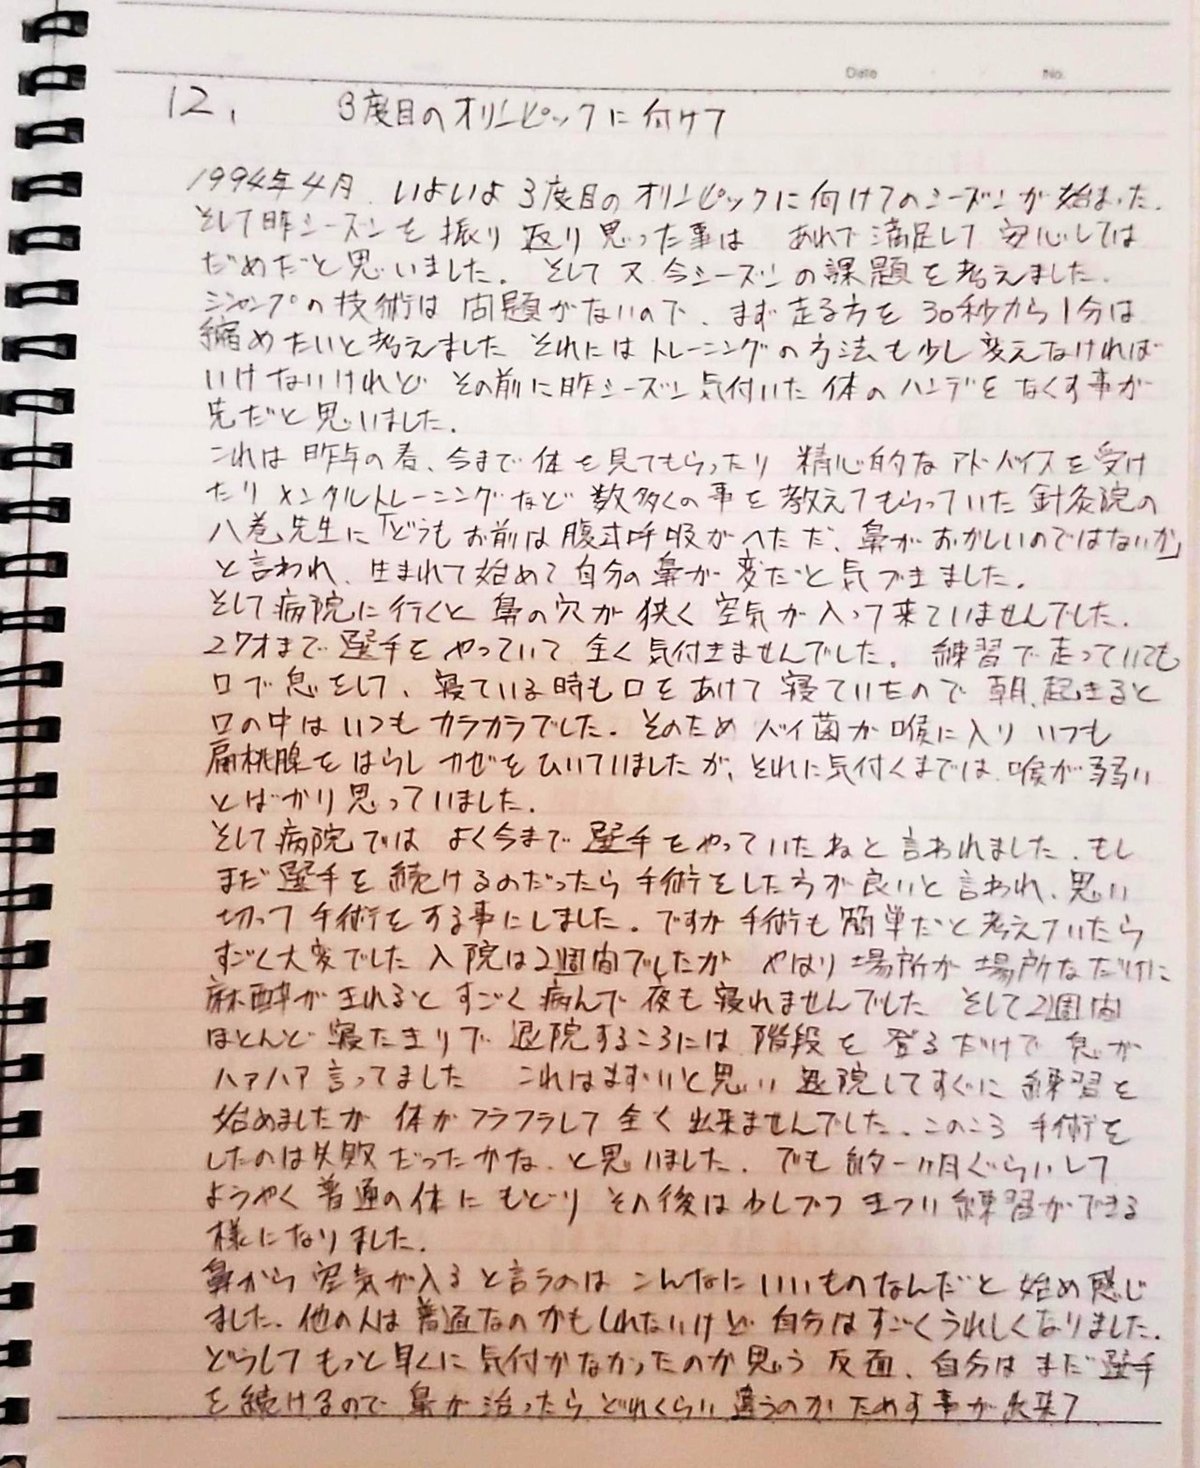 Date No.
12, 3度目のオリンピックに付けて
1994年4月、いよいよ3度目のオリンピックに向けてのシーズンが始まった。
そして昨シーズンを振り返り思った事は あれで満足して安心しては
だめだと思いました。そして又今シーズンの課題を考えました。
ジャンプの技術は問題がないので、まず走る方を30秒から1分は
縮めたいと考えました それにはトレーニングの方法も少し変えなければ
いけないけれど その前に昨シーズン気付いた体のハンデをなくす事が
先だと思いました。
これは昨年の春、今まで体を見てもらったり 精心的なアドバイスを受け
たりメンタルトレーニングなど数多くの事を教えてもらっていた針灸院の
八巻先生に「どうもお前は腹式呼吸がへただ、鼻がおかしいのではないか」
と言われ、生まれて始めて自分の鼻が変だと気づきました。
そして病院に行くと鼻の穴が狭く空気が入って来ていませんでした。
27才まで選手をやっていて全く気付きませんでした。練習で走っていても
口で息をして、寝ている時も口をあけて寝ていたので朝、起きると
口の中はいつもカラカラでした。そのためバイ菌が喉に入りいつも
扁桃腺をはらしカゼをひいていましたが、それに気付くまでは喉が弱い
とばかり思っていました。
そして病院では よく今まで選手をやっていたねと言われました。もし
まだ選手を続けるのだったら手術をした方が良いと言われ、思い
切って手術をする事にしました。ですが手術も簡単だと考えていたら
すごく大変でした 入院は2週間でしたが やはり場所が場所なだけに
麻酔がきれるとすごく病んで夜も寝れませんでした そして2週間
ほとんど寝たきりで退院するころには階段を登るだけで息が
ハァハァ言ってました これはまずいと思い退院してすぐに練習を
始めましたが体がフラフラして全く出来ませんでした。このころ手術を
したのは失敗だったかな、と思いました。でも約一ヶ月ぐらいして
ようやく普通の体にもどり その後は少しづつきつい練習ができる
様になりました。
鼻から空気が入ると言うのはこんなにいいものなんだと始め感じ
ました。他の人は普通なのかもしれないけど自分はすごくうれしくなりました。
どうしてもっと早くに気付かなかったのか思う反面、自分はまだ選手
を続けるので鼻が治ったらどれくらい違うのかためす事が出来て